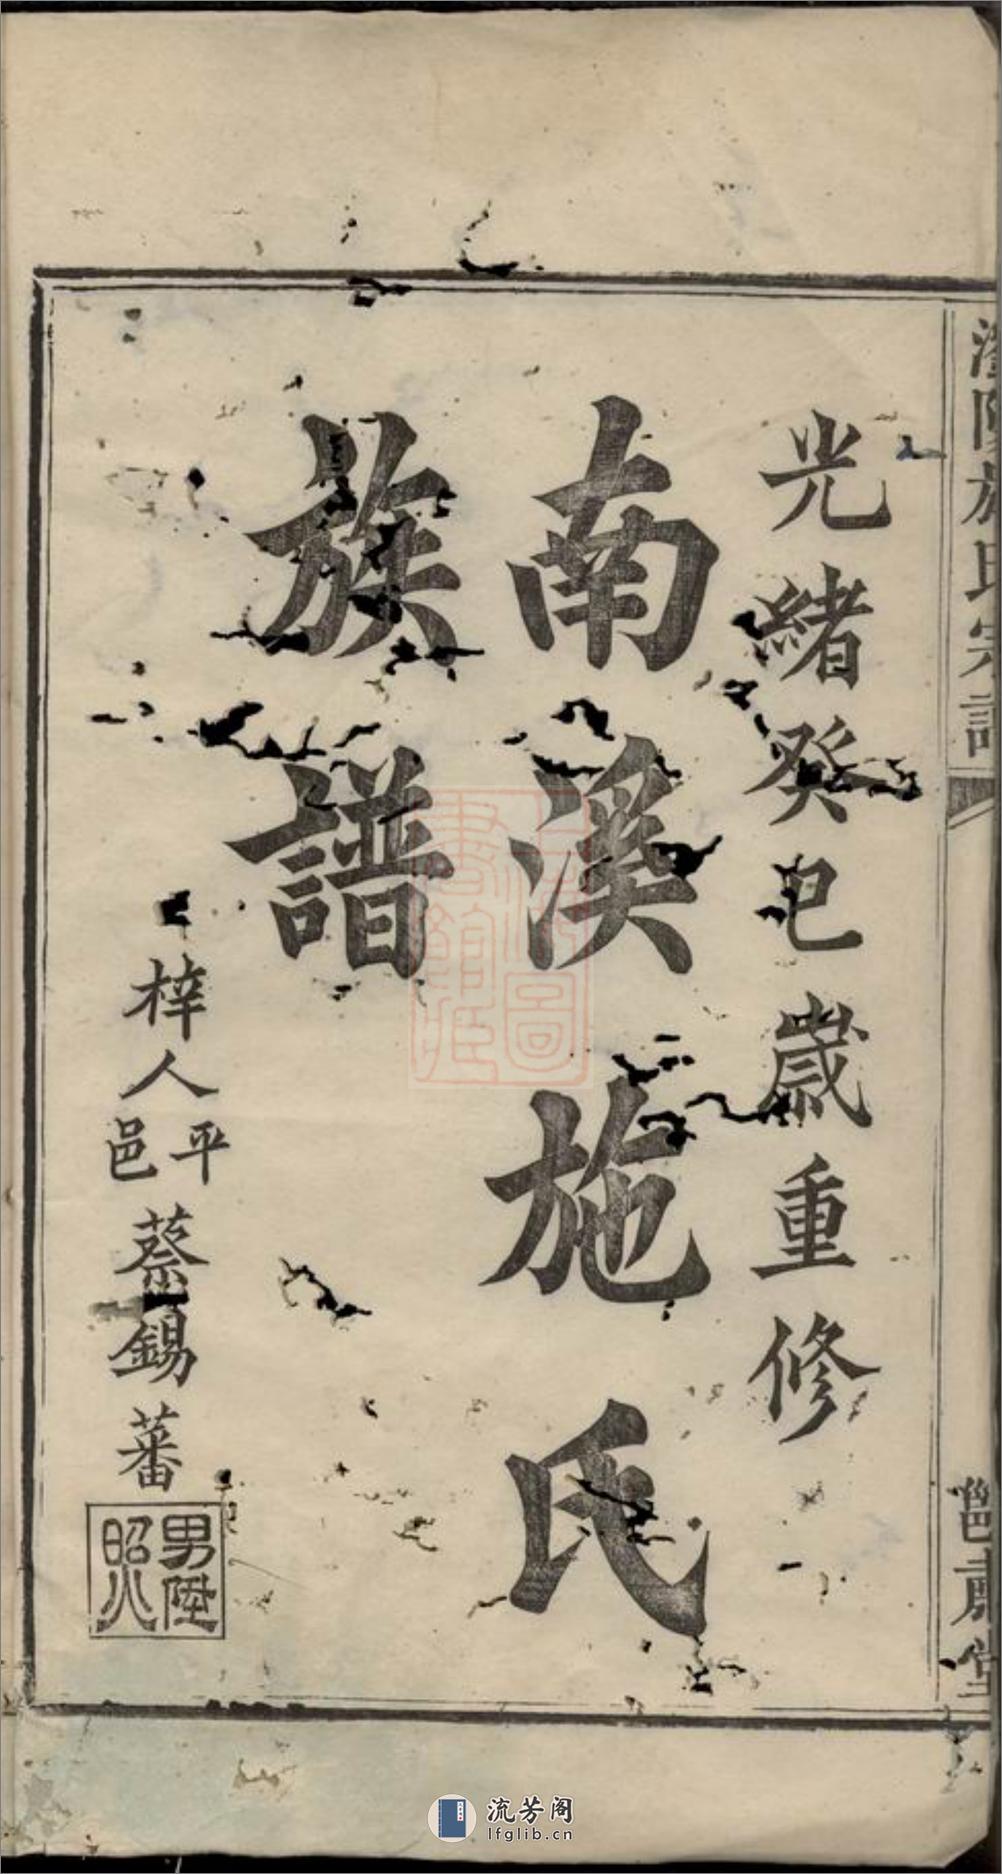 光緒癸巳歲重修
南溪施氏
族譜
梓人平邑蔡錫蕃
男陞
昭火
施氏宗譜
堂
圖
書館
流芳阁
lfglib.cn